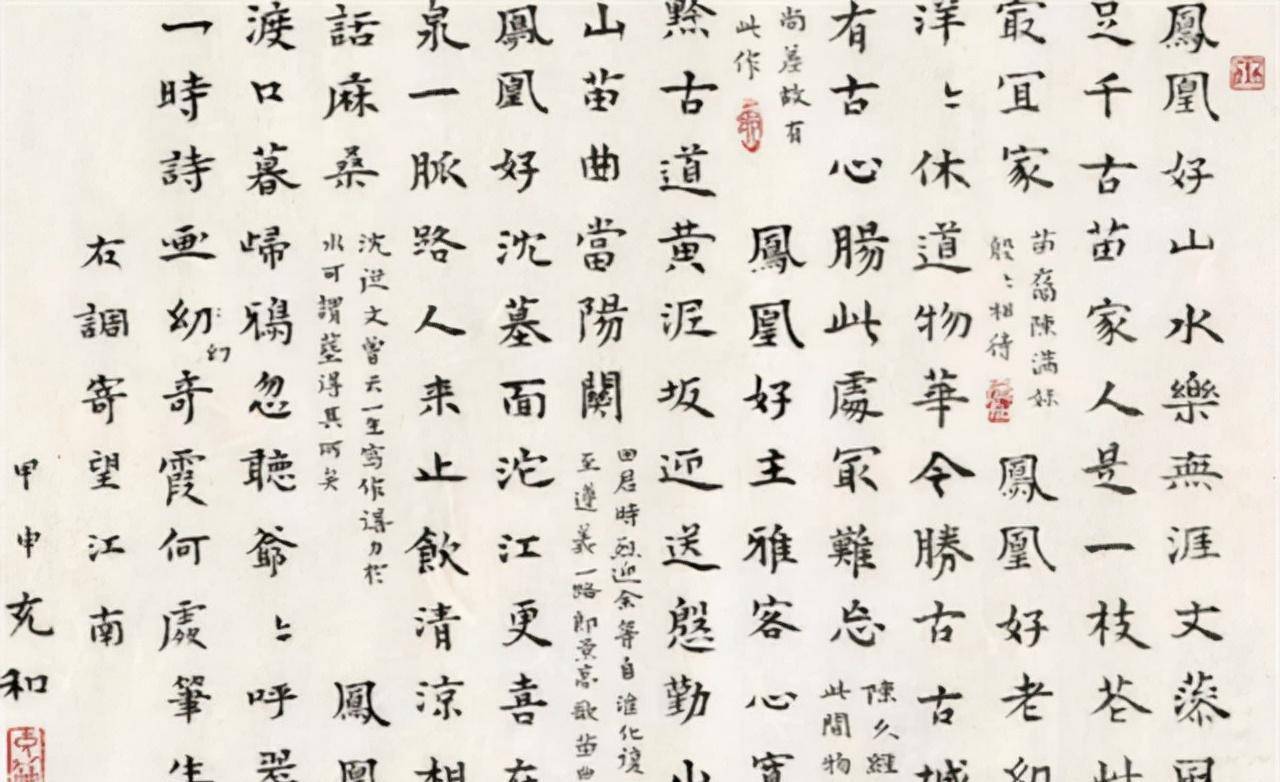 鳳凰好山水樂無涯文藻
足千古苗家人是一枝花此
冣宜家
苗裔陳滿妹
殷〻相待
鳳凰好老幼
洋〻休道物華今勝古古城
有古心腸此處冣難忘
陳久經
此間物
尚差故有
此作
鳳凰好主雅客心寬
黔古道黃泥坂迎送慇勤山
山苗曲當陽關
田君時烈迎余等自淮化復
至遵義一路郎景高歌苗曲
鳳凰好沈墓面沱江更喜在
泉一脈路人来止飲清涼相
話麻桑
沈從文曾云一生寫作得力於
水可謂墓得其所矣
鳳凰
渡口暮歸鴉忽聽爺〻呼翠
一時詩画幼奇霞何處筆生
幻
右調寄望江南
甲申充和